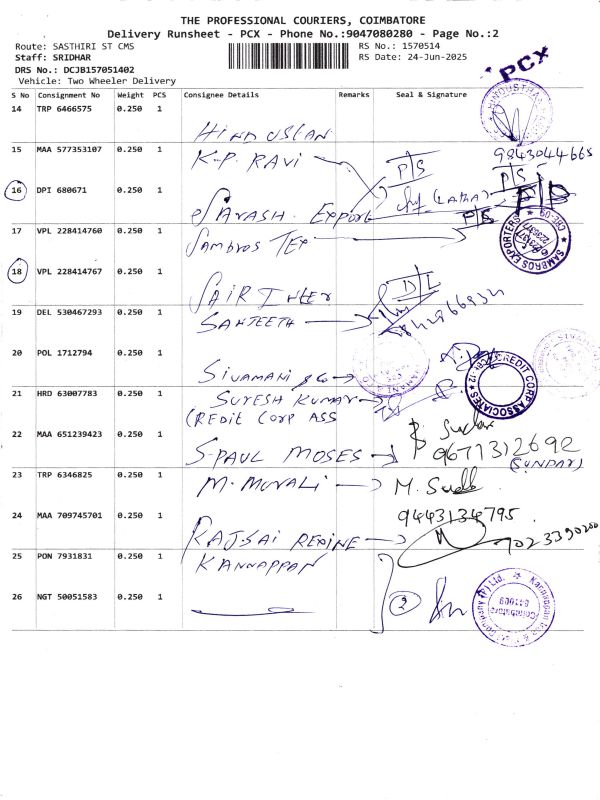 THE PROFESSIONAL COURIERS, COIMBATORE
Delivery Runsheet - PCX - Phone No.:9047080280 - Page No.:2
Route: SASTHIRI ST CMS
RS No.: 1570514
Staff: SRIDHAR
RS Date: 24-Jun-2025
DRS No.: DCJB157051402
Vehicle: Two Wheeler Delivery
PCX
S No Consignment No Weight PCS Consignee Details Remarks Seal & Signature
14 TRP 6466575 0.250 1
HINDUSTAN
15 MAA 577353107 0.250 1 K-P. RAVI 9843044665
P/S
16 DPI 680671 0.250 1
Export
17 VPL 228414760 0.250 1 Sambros TEX
SAMBROS EXPORTERS
18 VPL 228414767 0.250 1
D/L
19 DEL 530467293 0.250 1 SANJEETH
20 POL 1712794 0.250 1
SIVAMANI & Co
21 HRD 63007783 0.250 1 SURESH KUMAR
CREDIT CORP ASS
CREDIT CORP ASSOCIATES
22 MAA 651239423 0.250 1
S-PAUL MOSES 9677312692
(SUNDAR)
23 TRP 6346825 0.250 1 M. MURALI
9443134795
24 MAA 709745701 0.250 1
RAJSAI REXINE
25 PON 7931831 0.250 1 KANNAPPAN
26 NGT 50051583 0.250 1 2